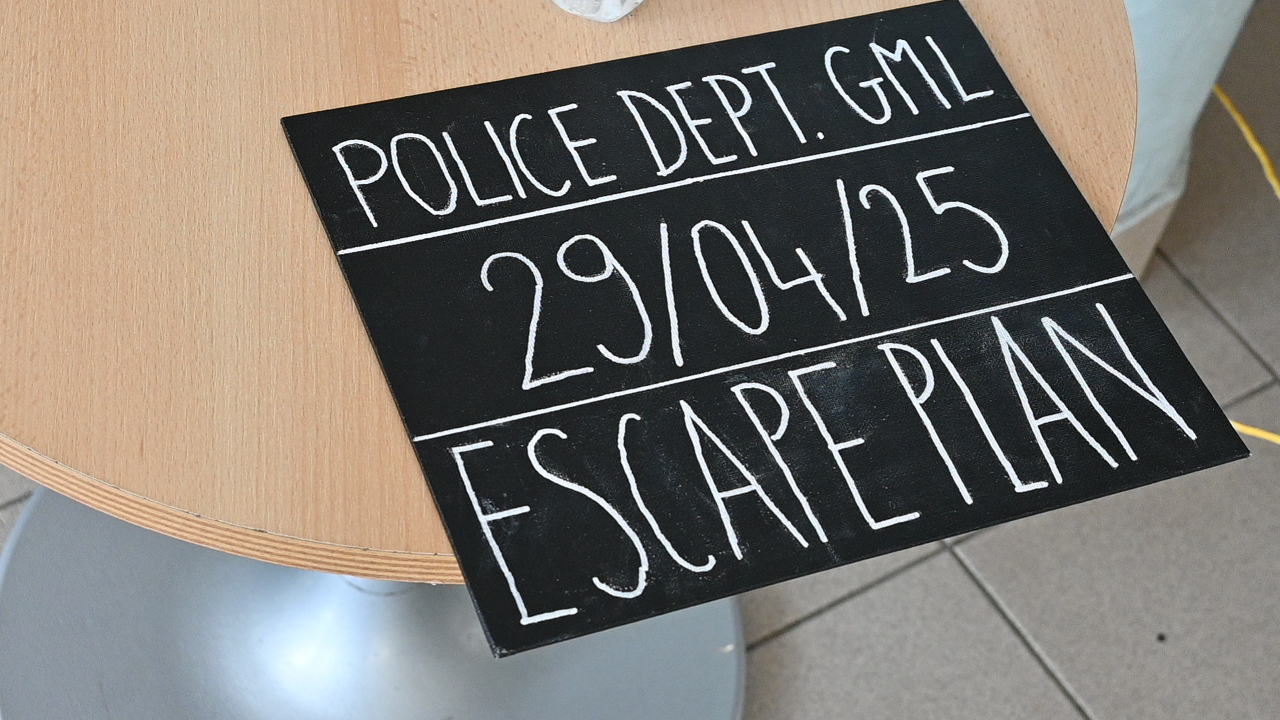 POLICE DEPT. GML
29/04/25
ESCAPE PLAN